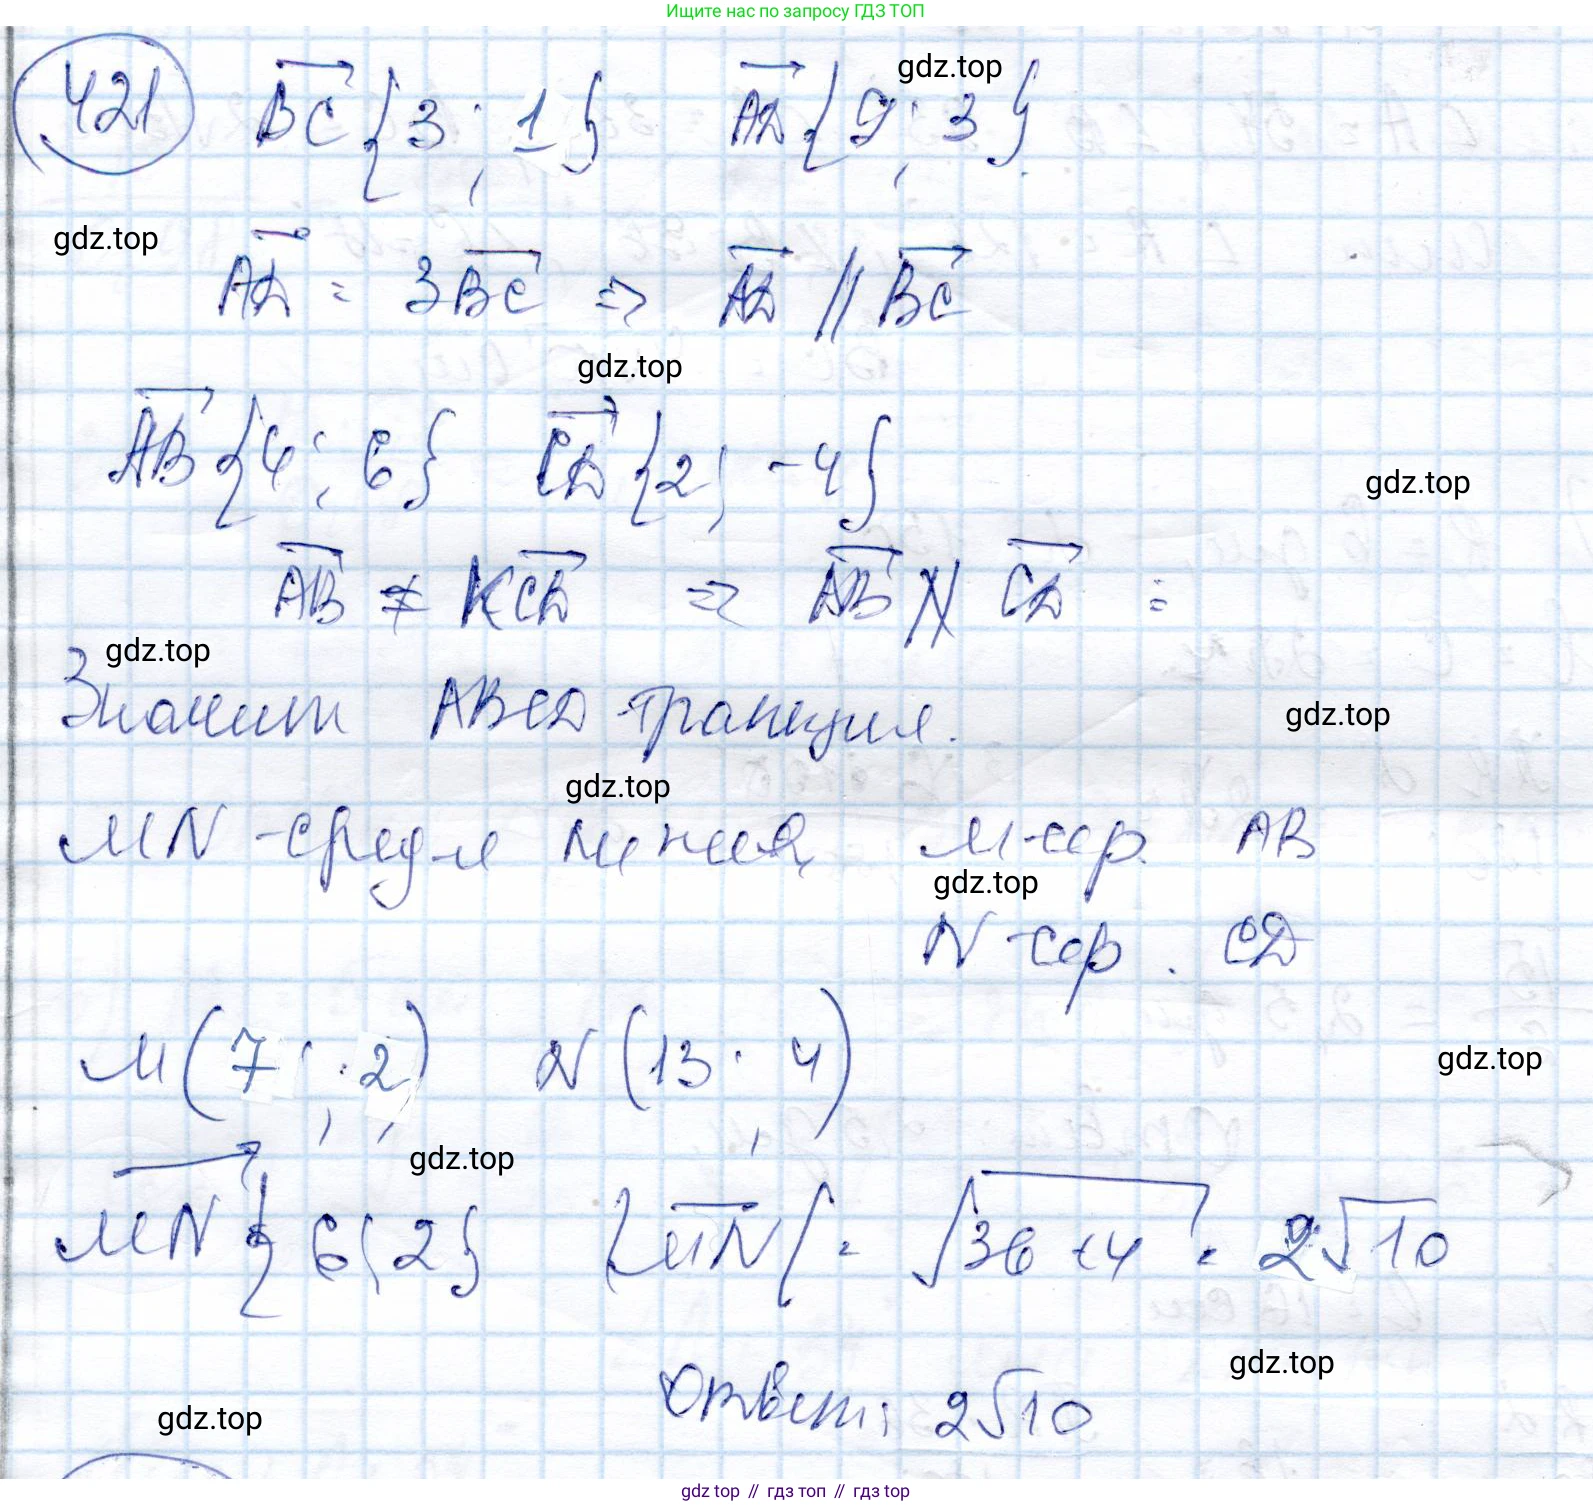 Ищите нас по запросу ГДЗ ТОП
421 BC{3; 1} AD{9; 3}
gdz.top
gdz.top
AD = 3BC ⇒ AD // BC
gdz.top
AB{4; 6} CD{2; -4}
gdz.top
AB ≠ KCD ⇒ AB ∦ CD :
gdz.top
Значит ABCD трапеция.
gdz.top
gdz.top
MN - средн-я линия, M - сер. AB
gdz.top
N - сер. CD
M(7; 2) N(13; 4)
gdz.top
gdz.top
MN{6; 2} |MN| = √36+4 = 2√10
gdz.top
Ответ: 2√10
gdz.top
gdz top // гдз топ // гдз top